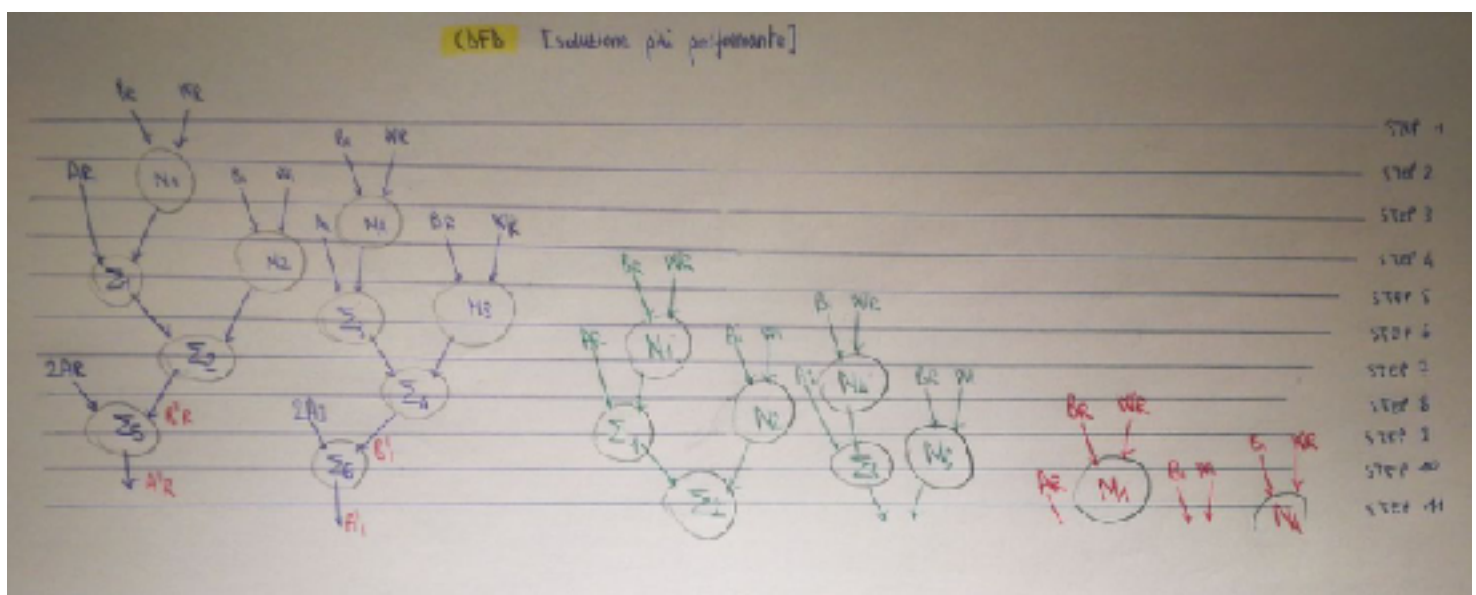 CDFD [soluzione più performante]
BR WR
STEP 1
BI WR
AR M1 BI WI
STEP 2
AI M4 BR WR
STEP 3
M2
BR WR
STEP 4
Σ1
STEP 5
Σ3 M3
BI WR
STEP 6
Σ2
AR M1 BI WI
STEP 7
2AR
Σ4
AI M4 BR WI
STEP 8
Σ5 B'R 2AI
Σ3 M2
BR WR
STEP 9
Σ6 B'I
Σ3 M3
BI WR
STEP 10
A'R
AR M1 BI WI
Σ2
M4
STEP 11
A'I